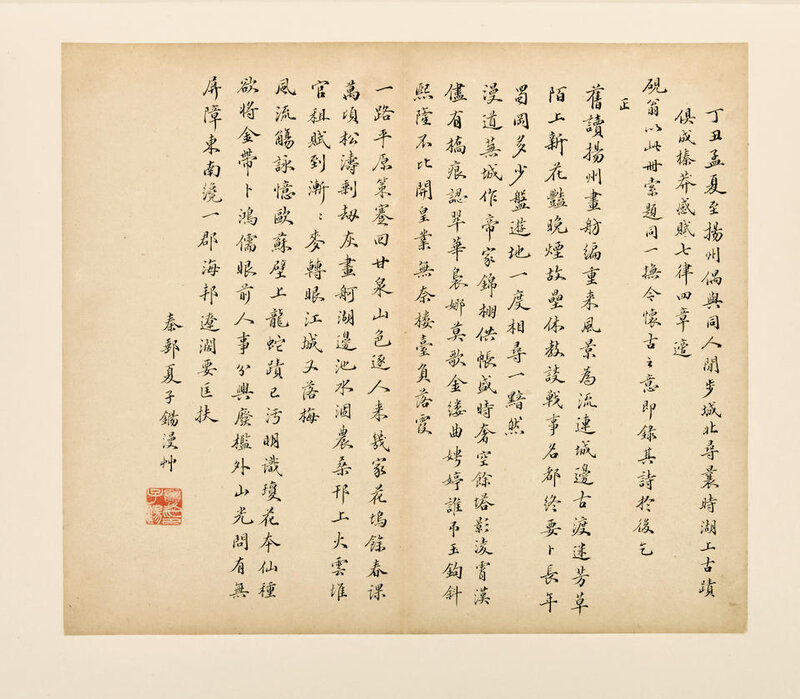 丁丑孟夏至揚州偶與同人閒步城北尋曩時湖上古蹟
俱成榛莽感賦七律四章適
硯翁以此冊索題同一撫今懷古之意即錄其詩於後乞
正
舊讀揚州畫舫編重來風景為流連城邊古渡迷芳草
陌上新花豔晚煙故壘休教談戰事名都終要卜長年
蜀岡多少盤遊地一度相尋一黯然
漫道蕪城作帝家錦棚供帳盛時奢空餘塔影淩霄漢
儘有橋痕認翠華裊娜莫歌金縷曲娉婷誰弔玉鉤斜
熙隆不比開皇業無奈樓臺負落霞
一路平原策蹇回甘泉山色逐人來幾家花塢餘春課
萬頃松濤剩劫灰畫舸湖邊池水涸農桑邗上火雲堆
官租賦到漸漸麥轉眼江城又落梅
風流觴詠憶歐蘇壁上龍蛇蹟已汚明識瓊花本仙種
欲將金帶卜鴻儒眼前人事分興廢檻外山光問有無
屏障東南纔一郡海邦遼濶要匡扶
秦郵夏子鐊漫艸